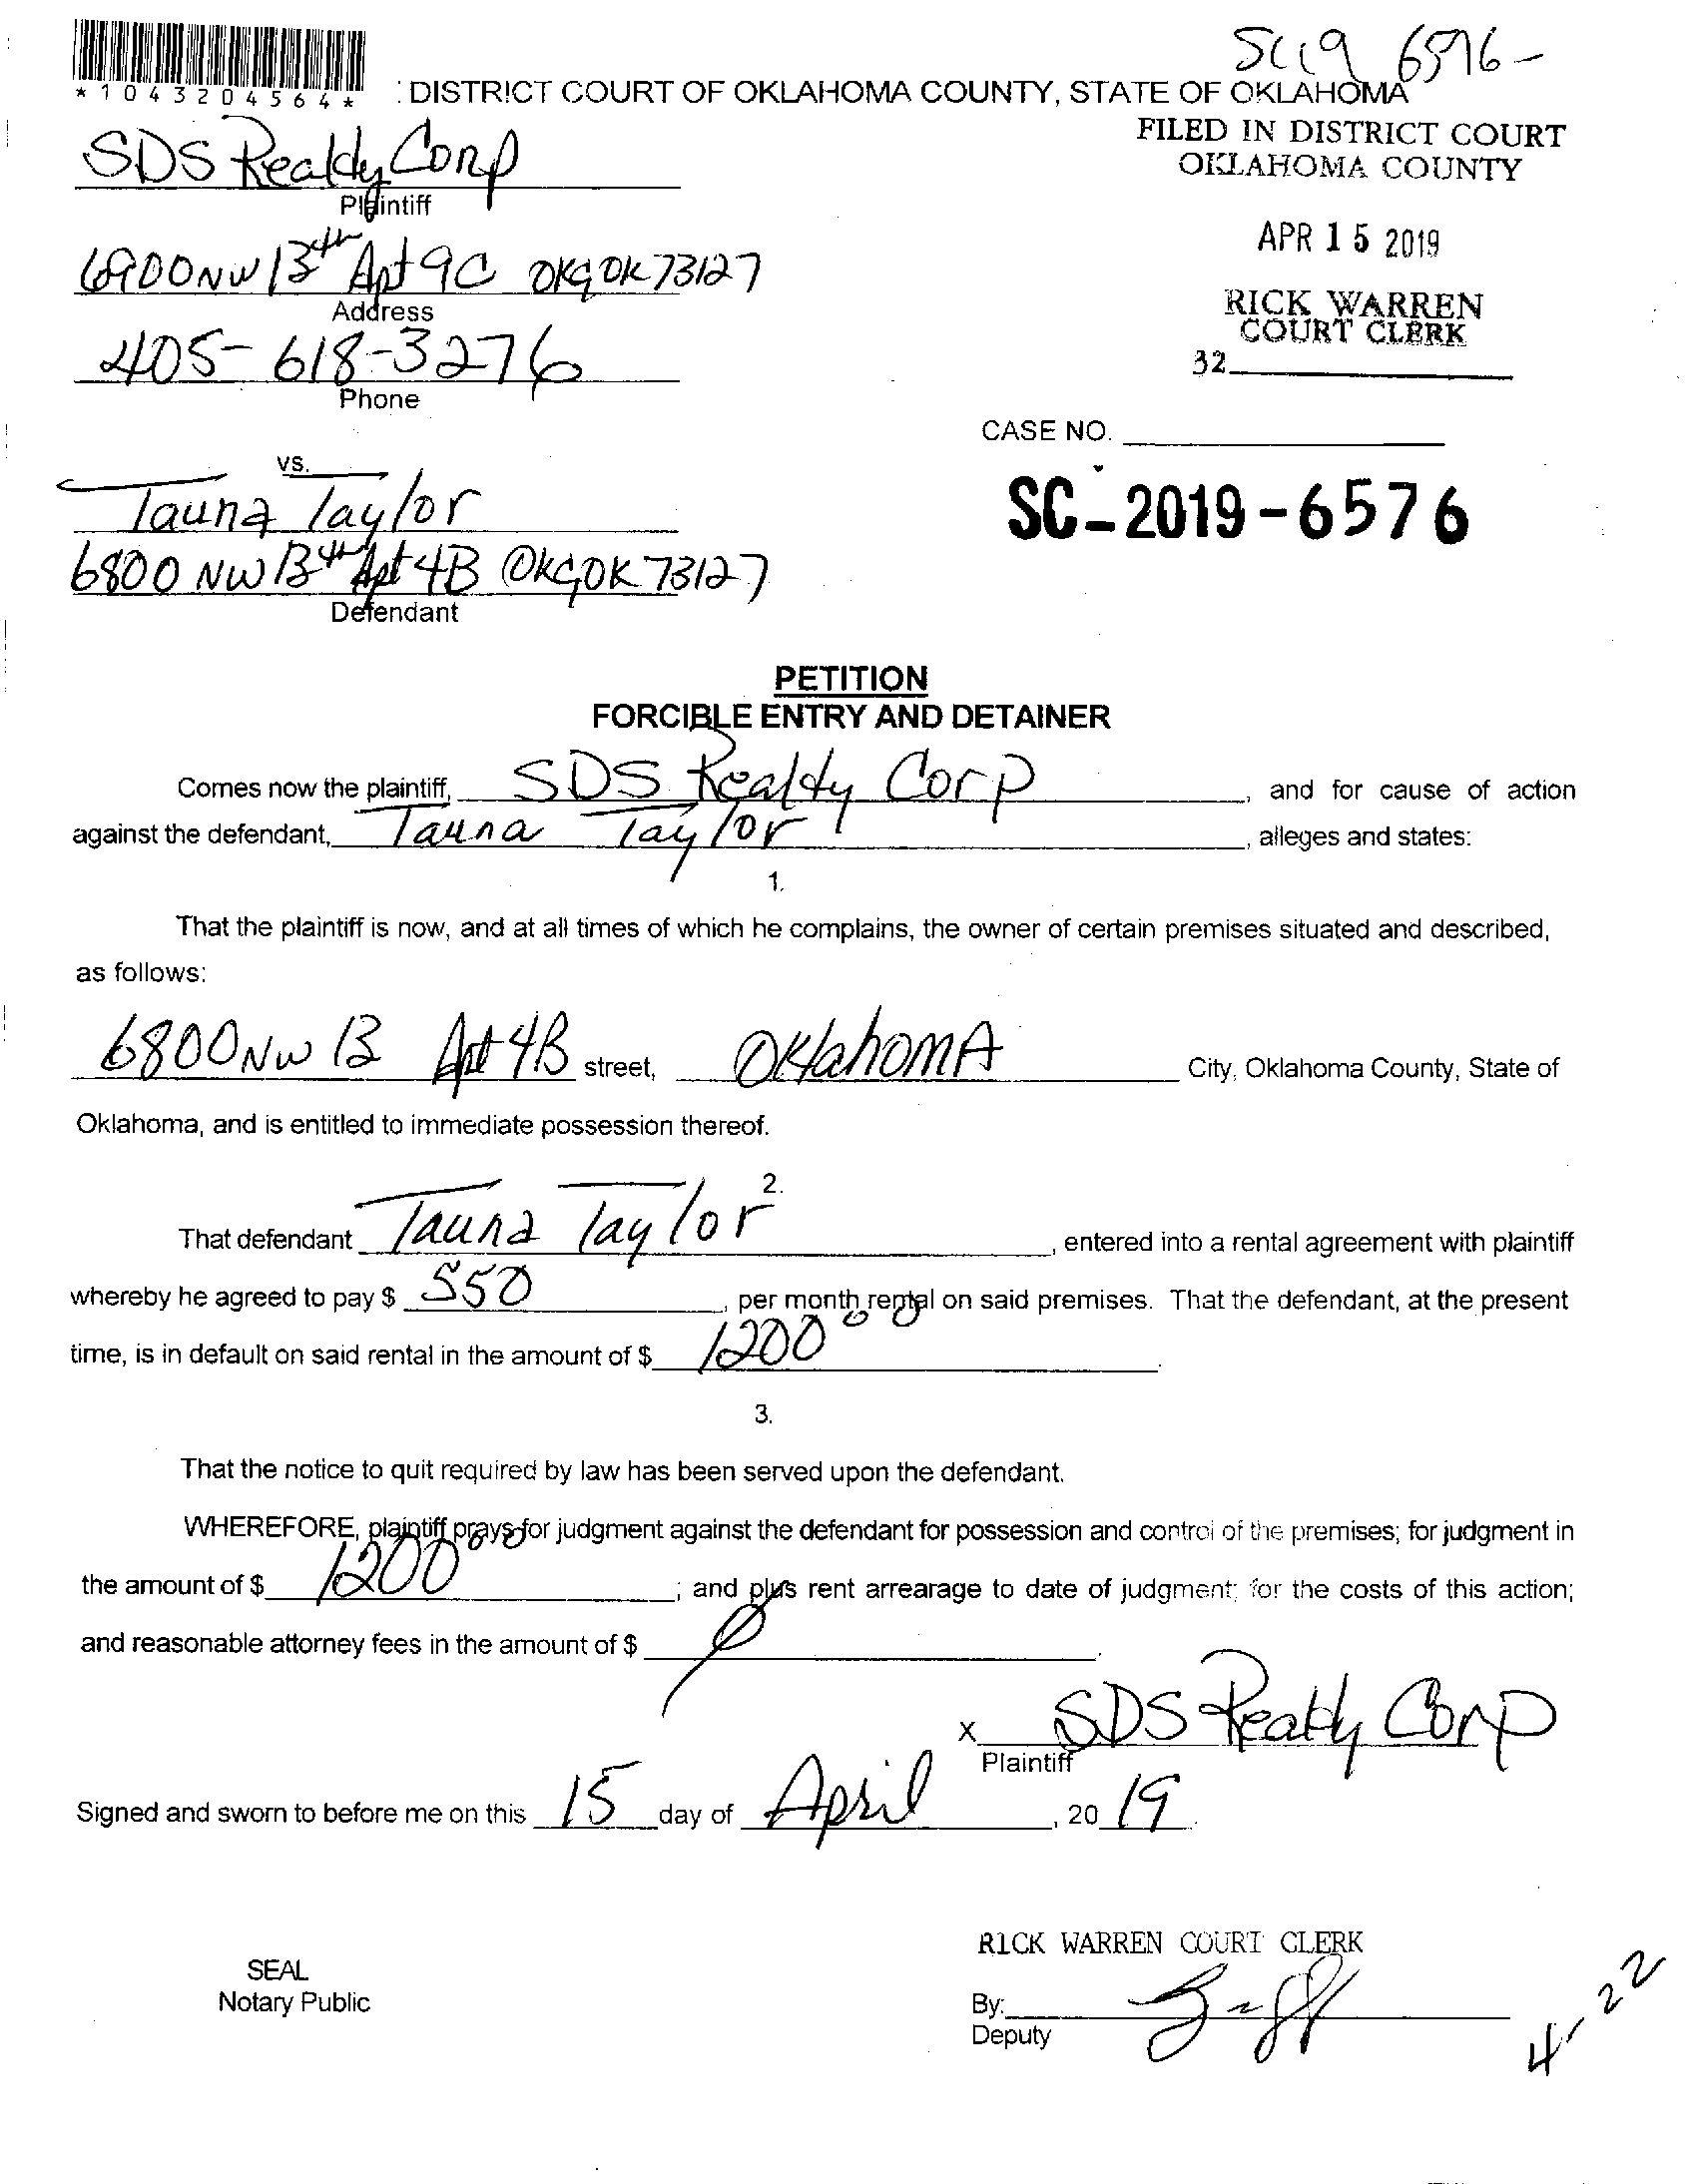 SC19 6576-
*1043204564* : DISTRICT COURT OF OKLAHOMA COUNTY, STATE OF OKLAHOMA
FILED IN DISTRICT COURT
OKLAHOMA COUNTY
SDS Realty Corp
Plaintiff
APR 15 2019
6900 NW 13th Apt 9C OKC OK 73127
Address
RICK WARREN
COURT CLERK
405-618-3276
32
Phone
CASE NO.
vs.
Tauna Taylor
SC-2019-6576
6800 NW 13th Apt 4B OKC OK 73127
Defendant
PETITION
FORCIBLE ENTRY AND DETAINER
Comes now the plaintiff, SDS Realty Corp, and for cause of action
against the defendant, Tauna Taylor, alleges and states:
1.
That the plaintiff is now, and at all times of which he complains, the owner of certain premises situated and described,
as follows:
6800 NW 13 Apt 4B street, OKlahomA City, Oklahoma County, State of
Oklahoma, and is entitled to immediate possession thereof.
2.
That defendant Tauna Taylor, entered into a rental agreement with plaintiff
whereby he agreed to pay $ 550, per month rental on said premises. That the defendant, at the present
time, is in default on said rental in the amount of $ 1200 00.
3.
That the notice to quit required by law has been served upon the defendant.
WHEREFORE, plaintiff prays for judgment against the defendant for possession and control of the premises; for judgment in
the amount of $ 1200 00; and plus rent arrearage to date of judgment; for the costs of this action;
and reasonable attorney fees in the amount of $ 0.
x SDS Realty Corp
Plaintiff
Signed and sworn to before me on this 15 day of April, 20 19.
RICK WARREN COURT CLERK
SEAL
Notary Public
By:
Deputy
4-22